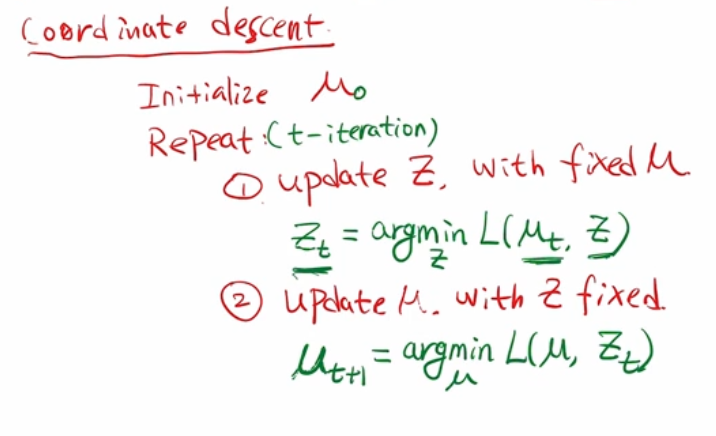 Coordinate descent.
Initialize μ₀
Repeat:(t-iteration)
① update Z, with fixed μ
Z_t = argmin_Z L(μ_t, Z)
② update μ. with Z fixed.
μ_{t+1} = argmin_μ L(μ, Z_t)